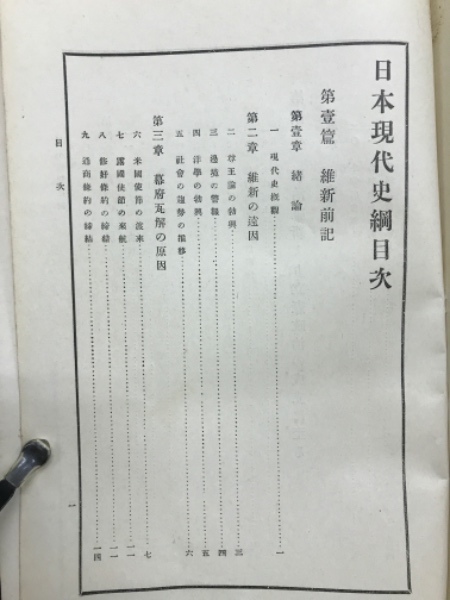 日本現代史綱目次
第壹篇 維新前記
第壹章 緒論
一 現代史槪觀……一
第二章 維新の遠因
二 尊王論の勃興……三
三 邊境の警報……四
四 洋學の勃興……五
五 社會の趨勢の推移……六
第三章 幕府瓦解の原因
六 米國使節の渡來……七
七 露國使節の來航……一一
八 修好條約の締結……一一
九 通商條約の締結……一四
目次
一